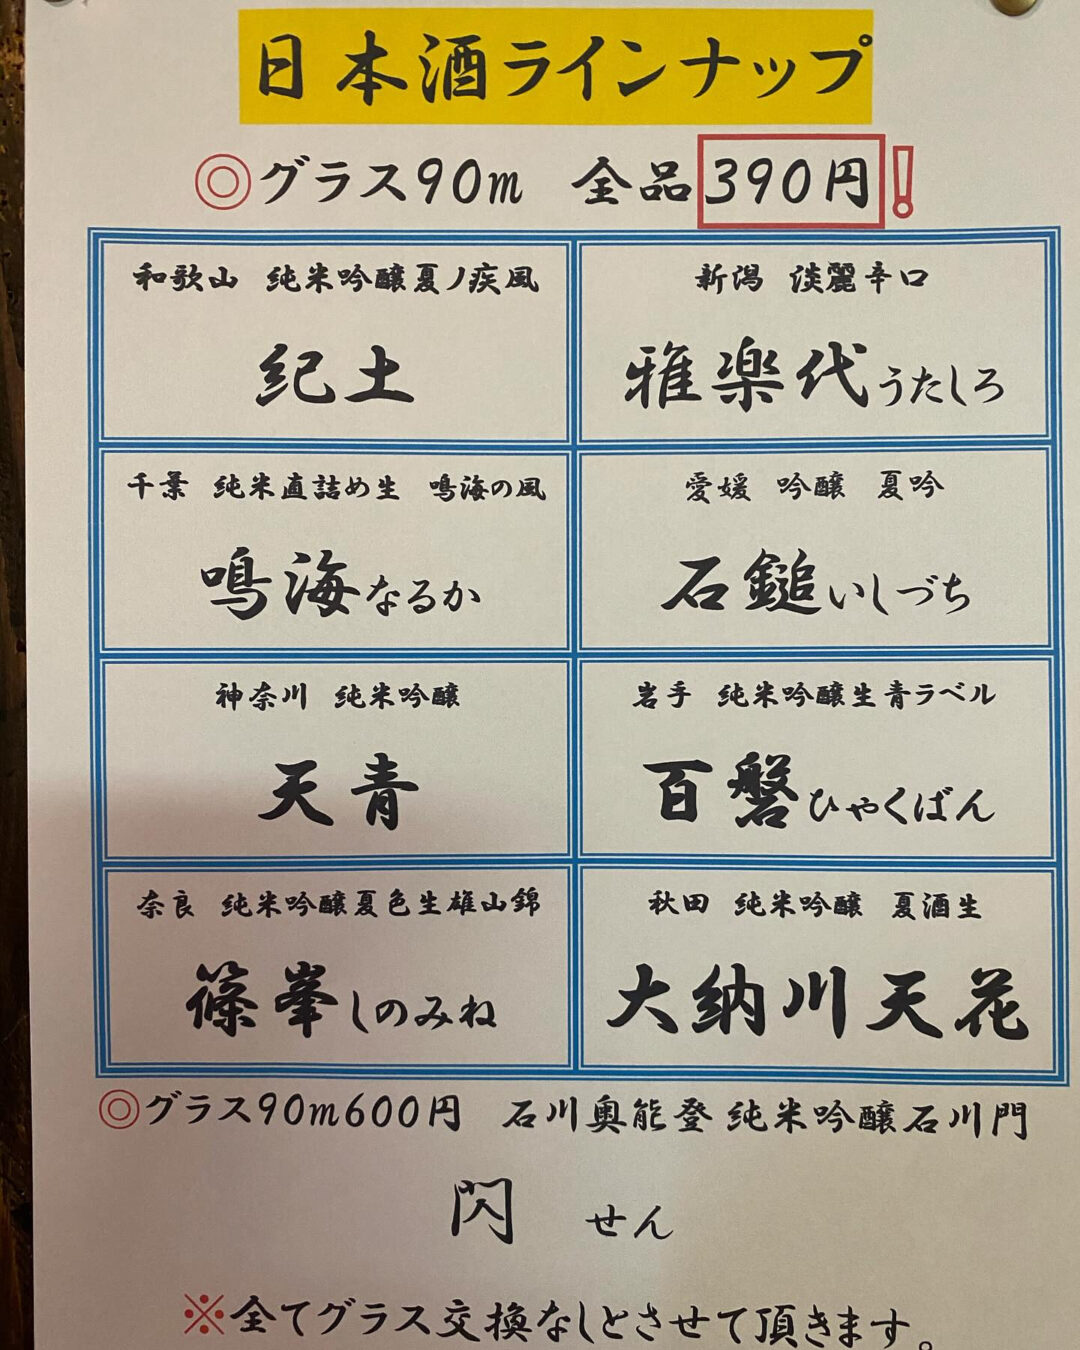 日本酒ラインナップ
◎グラス90m 全品390円!
和歌山 純米吟醸夏ノ疾風
紀土
新潟 淡麗辛口
雅楽代うたしろ
千葉 純米直詰め生 鳴海の風
鳴海なるか
愛媛 吟醸 夏吟
石鎚いしづち
神奈川 純米吟醸
天青
岩手 純米吟醸生青ラベル
百磐ひゃくばん
奈良 純米吟醸夏色生雄山錦
篠峯しのみね
秋田 純米吟醸 夏酒生
大納川天花
◎グラス90m600円 石川奥能登 純米吟醸石川門
閃 せん
※全てグラス交換なしとさせて頂きます。